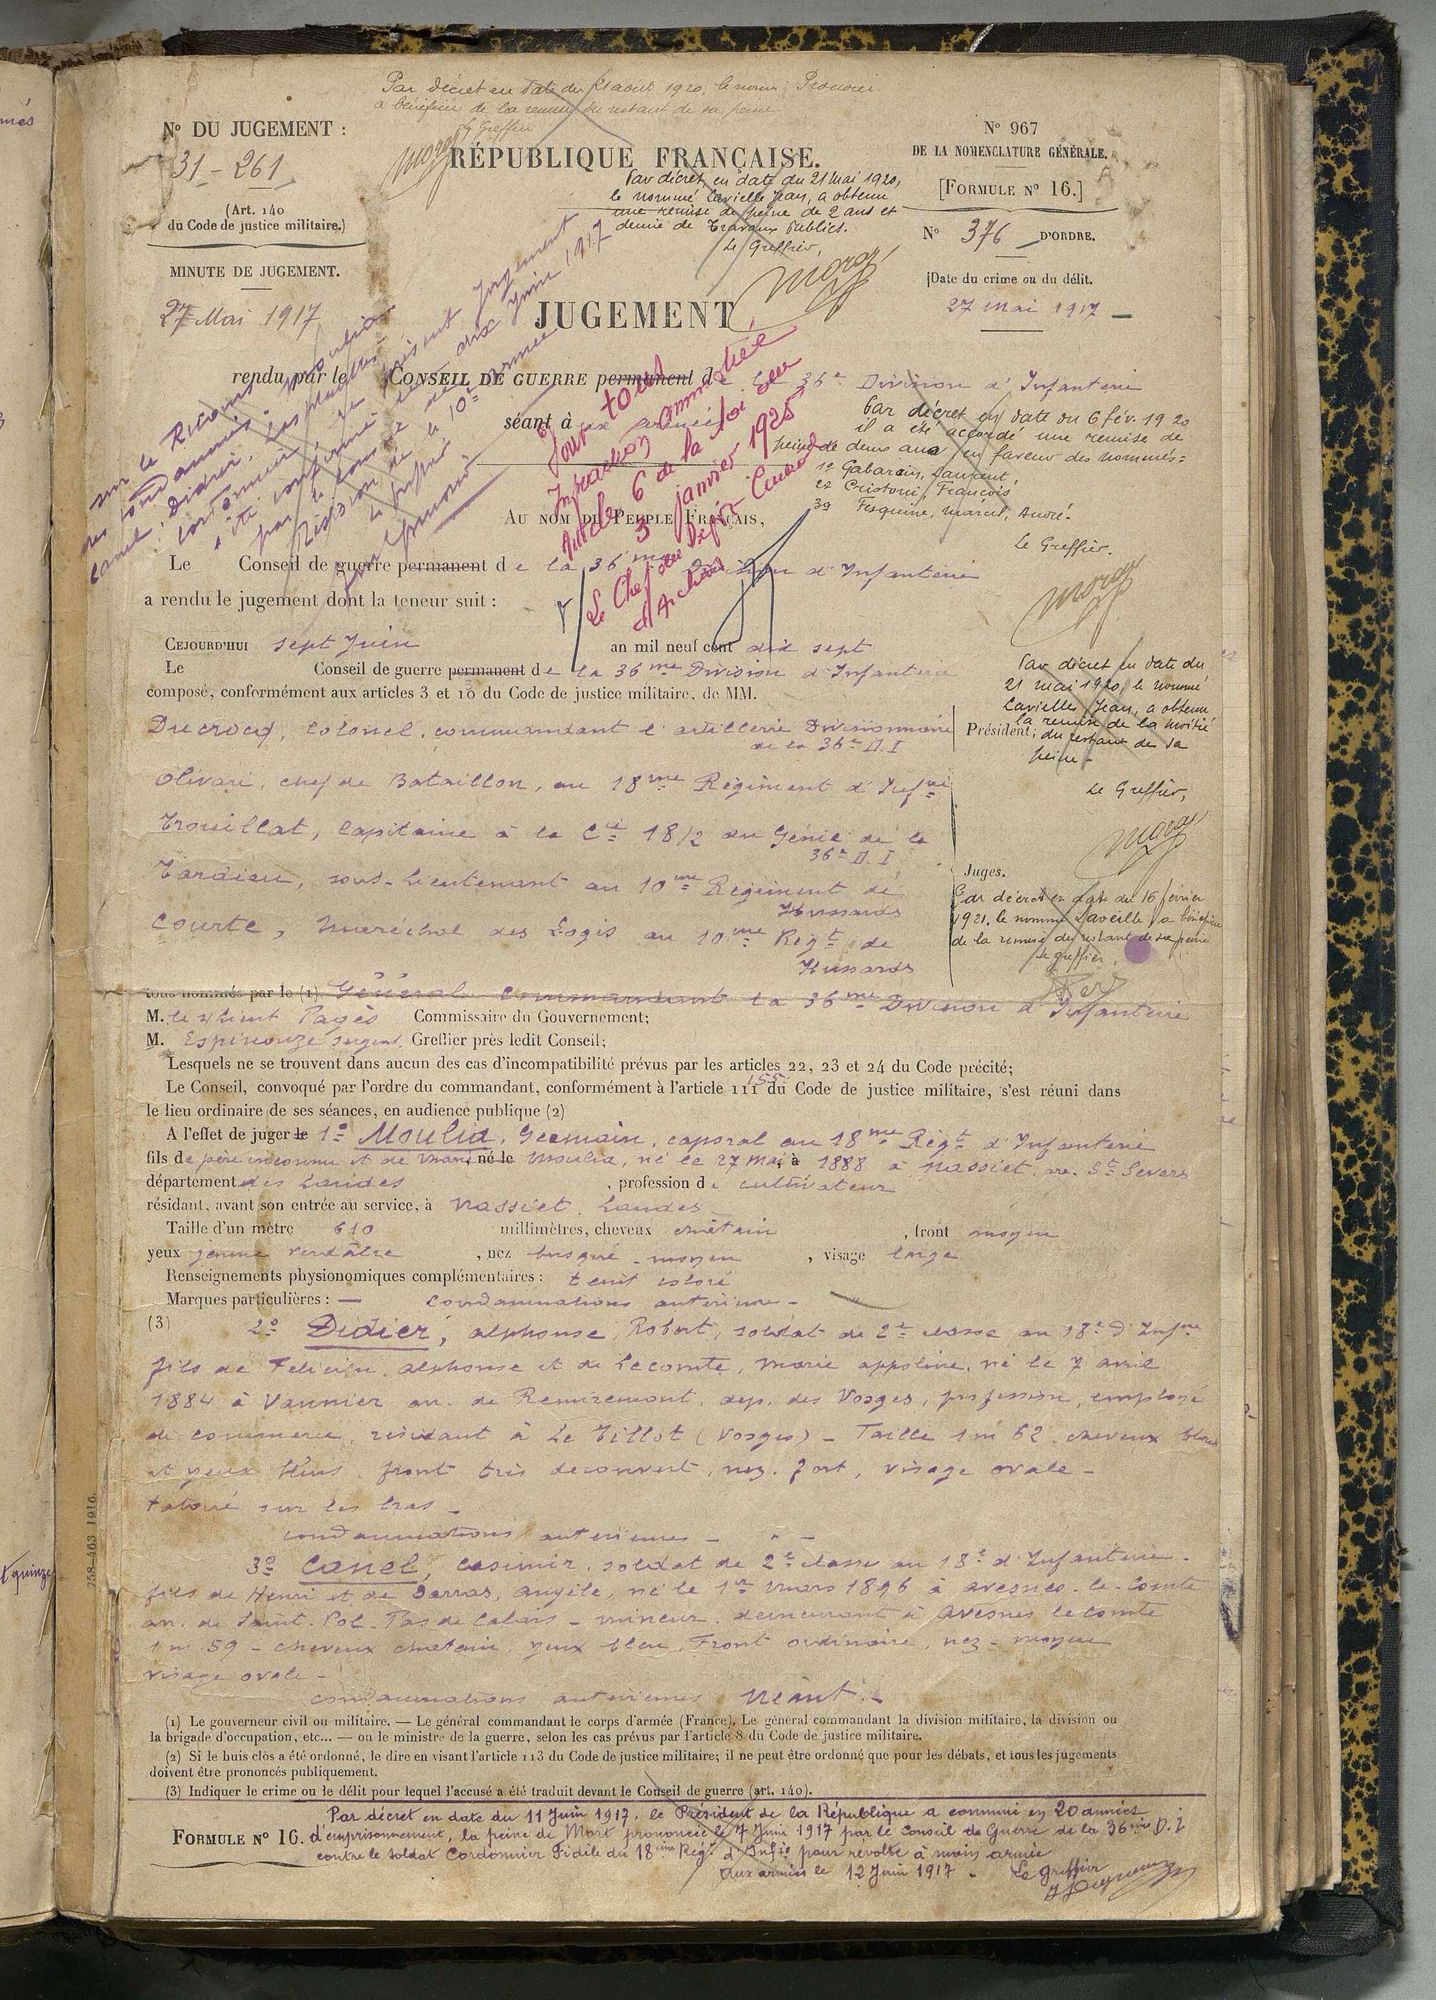 Par décret en date du 21 août 1920, le nommé
a bénéficié de la remise du restant de sa peine
Le Greffier
N° DU JUGEMENT :
31 - 261
(Art. 140
du Code de justice militaire.)
MINUTE DE JUGEMENT.
27 Mai 1917
RÉPUBLIQUE FRANÇAISE.
Par décret en date du 21 Mai 1920,
le nommé Lavielle Jean, a obtenu
une remise de peine de 2 ans et
demie de Travaux Publics.
Le Greffier,
N° 967
DE LA NOMENCLATURE GÉNÉRALE.
[FORMULE N° 16.]
N° 376 D'ORDRE.
Date du crime ou du délit.
27 mai 1917
sur le Recours
des condamnés, Moulia
Canel, Didier, Lasplacettes
Cordonnier, le présent Jugement
a été confirmé le dix Juin 1917
par le Conseil de
Révision de la 10e Armée
Le Greffier
JUGEMENT
rendu par le CONSEIL DE GUERRE permanent de la 36e Division d'Infanterie
séant à aux armées
Pour tous
Infraction amnistiée
Article 6 de la loi du
3 janvier 1925
Le Chef du Dépôt Central
d'Archives
Par décret en date du 6 fév. 1920
il a été accordé une remise de
peine de deux ans en faveur des nommés :
1° Gabarain, Laurent,
2° Cristoni, François,
3° Fesquine, Marcel, André.
Le Greffier.
AU NOM DU PEUPLE FRANÇAIS,
Le Conseil de guerre permanent de la 36me Division d'Infanterie
a rendu le jugement dont la teneur suit :
CEJOURD'HUI sept Juin an mil neuf cent dix sept
Le Conseil de guerre permanent de la 36me Division d'Infanterie
composé, conformément aux articles 3 et 10 du Code de justice militaire, de MM.
Ducrocq, Colonel, commandant l'artillerie Divisionnaire
de la 36e D.I
Président;
Par décret en date du
21 mai 1920, le nommé
Lavielle, Jean, a obtenu
la remise de la moitié
du restant de sa
peine -
Le Greffier,
Olivari, chef de Bataillon, au 18me Régiment d'Infrie
Trouillat, Capitaine à la Cie 18/2 du Génie de la
36e D.I
Tardieu, sous-Lieutenant au 10me Régiment de
Hussards
Courte, Maréchal des Logis au 10me Regt de
Hussards
Juges.
Par décret en date du 16 février
1921, le nommé Laveille a bénéficié
de la remise du restant de sa peine
Le greffier.
tous nommés par le (1) Général Commandant la 36me Division d'Infanterie
M. le s/Lieut Pagès Commissaire du Gouvernement;
M. Espinouze sergent, Greffier près ledit Conseil;
Lesquels ne se trouvent dans aucun des cas d'incompatibilité prévus par les articles 22, 23 et 24 du Code précité;
Le Conseil, convoqué par l'ordre du commandant, conformément à l'article 111 155 du Code de justice militaire, s'est réuni dans
le lieu ordinaire de ses séances, en audience publique (2)
A l'effet de juger le 1° Moulia, Germain, caporal au 18me Régt d'Infanterie
fils de père inconnu et de Marie né le Moulia, né le 27 mai à 1888 à Nassiet, ar. St Severs
département des Landes , profession de cultivateur
résidant, avant son entrée au service, à Nassiet, Landes
Taille d'un mètre 610 millimètres, cheveux chatain , front moyen
yeux jaune verdâtre , nez busqué moyen , visage large
Renseignements physionomiques complémentaires : teint coloré
Marques particulières : — condamnations antérieures -
(3) 2° Didier, Alphonse, Robert, soldat de 2e classe au 18e d'Infrie
fils de Felicien, Alphonse et de Lecomte, Marie Appoline, né le 7 avril
1884 à Vannier ar. de Remiremont, dep. des Vosges, profession, employé
de commerce, résidant à Le Tillot (Vosges) - Taille 1m 62, cheveux
et yeux bleus, front très découvert, nez fort, visage ovale -
tatoué sur les bras -
condamnations antérieures - " -
3° Canel, Casimir, soldat de 2e classe au 18e d'Infanterie -
fils de Henri et de Darras, Angèle, né le 1er Mars 1896 à Avesnes-le-Comte
ar. de Saint-Pol, Pas de Calais - mineur, demeurant à Avesnes le Comte
1m 59 - cheveux chatain, yeux bleu, Front ordinaire, nez - moyen
visage ovale -
condamnations antérieures Néant. -
(1) Le gouverneur civil ou militaire. — Le général commandant le corps d'armée (France). Le général commandant la division militaire, la division ou
la brigade d'occupation, etc... — ou le ministre de la guerre, selon les cas prévus par l'article 8 du Code de justice militaire.
(2) Si le huis clos a été ordonné, le dire en visant l'article 113 du Code de justice militaire; il ne peut être ordonné que pour les débats, et tous les jugements
doivent être prononcés publiquement.
(3) Indiquer le crime ou le délit pour lequel l'accusé a été traduit devant le Conseil de guerre (art. 140).
758-463 1916.
FORMULE N° 16.
Par décret en date du 11 Juin 1917, le Président de la République a commué en 20 années
d'emprisonnement, la peine de Mort prononcée le 7 Juin 1917 par le Conseil de Guerre de la 36ème D.I
contre le soldat Cordonnier Fidèle du 18ème Régt d'Infie pour révolte à main armée
Aux armées le 12 Juin 1917 - Le Greffier